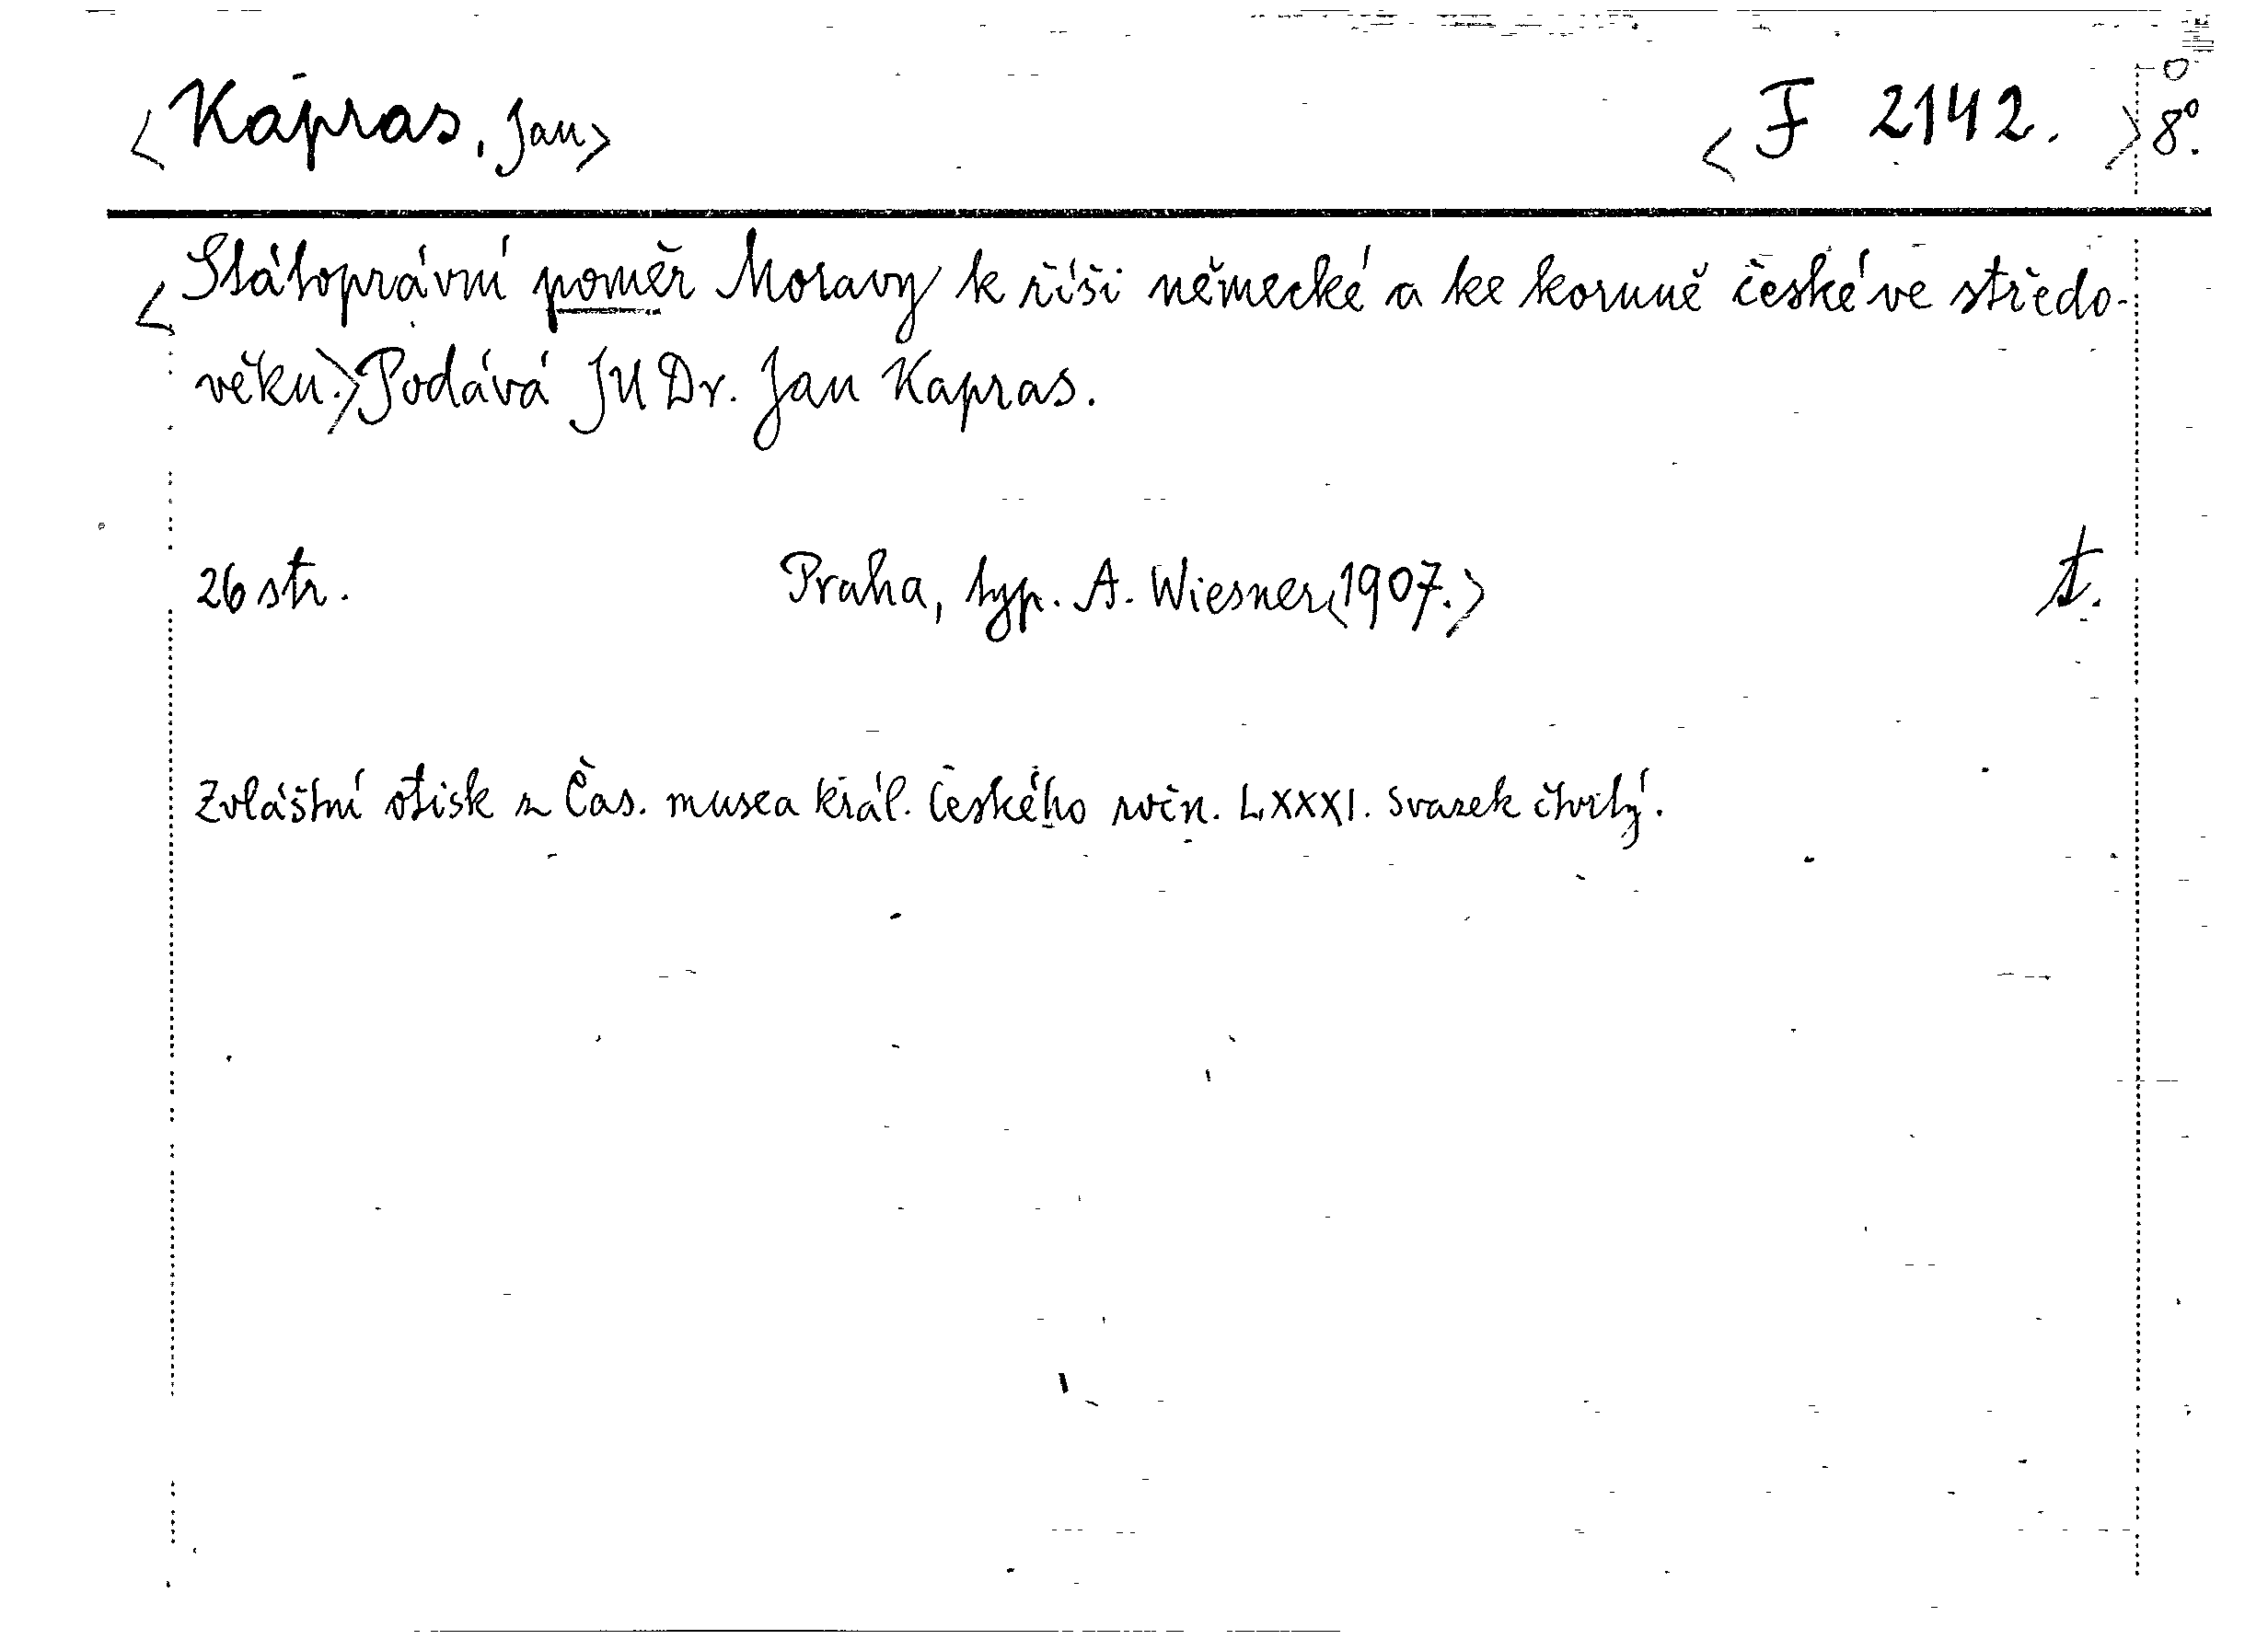 <Kapras, Jan> <F 2142.> 8°.
<Státoprávní poměr Moravy k říši německé a ke koruně české ve středo-
věku.> Podává JUDr. Jan Kapras.
26 str. Praha, typ. A. Wiesner <1907.> t.
Zvláštní otisk z Čas. musea král. Českého ročn. LXXXI. svazek čtvrtý.